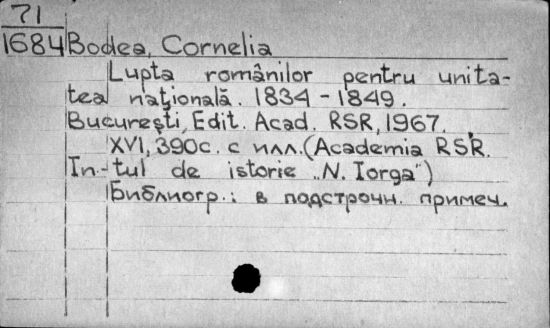 71
1684 Bodea, Cornelia
Lupta românilor pentru unita-
tea naţională. 1834-1849.
Bucureşti, Edit. Acad. RSR, 1967.
XVI, 390с. с илл. (Academia RSR.
In-tul de istorie „N. Iorga")
Библиогр.: в подстрочн. примеч.